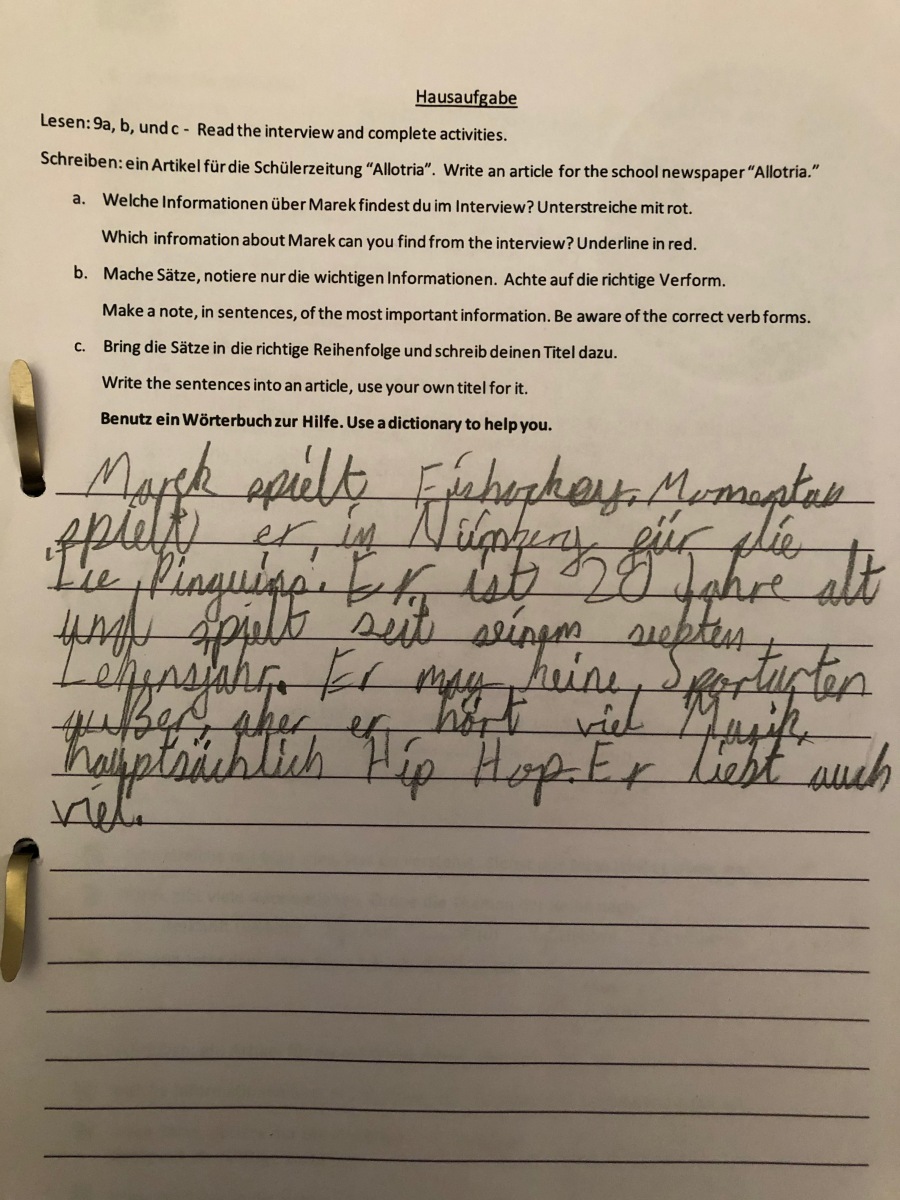 Hausaufgabe
Lesen: 9a, b, und c - Read the interview and complete activities.
Schreiben: ein Artikel für die Schülerzeitung "Allotria". Write an article for the school newspaper "Allotria."
a. Welche Informationen über Marek findest du im Interview? Unterstreiche mit rot.
Which infromation about Marek can you find from the interview? Underline in red.
b. Mache Sätze, notiere nur die wichtigen Informationen. Achte auf die richtige Verform.
Make a note, in sentences, of the most important information. Be aware of the correct verb forms.
c. Bring die Sätze in die richtige Reihenfolge und schreib deinen Titel dazu.
Write the sentences into an article, use your own titel for it.
Benutz ein Wörterbuch zur Hilfe. Use a dictionary to help you.
Marek spielt Eishockey. Momentan
spielt er in Nürnberg für die
Pinguins'. Er ist 20 Jahre alt
und spielt seit seinem siebten
Lebensjahr. Er mag keine Sportarten
außer, aber er hört viel Musik,
hauptsächlich Hip Hop. Er liest auch
viel.